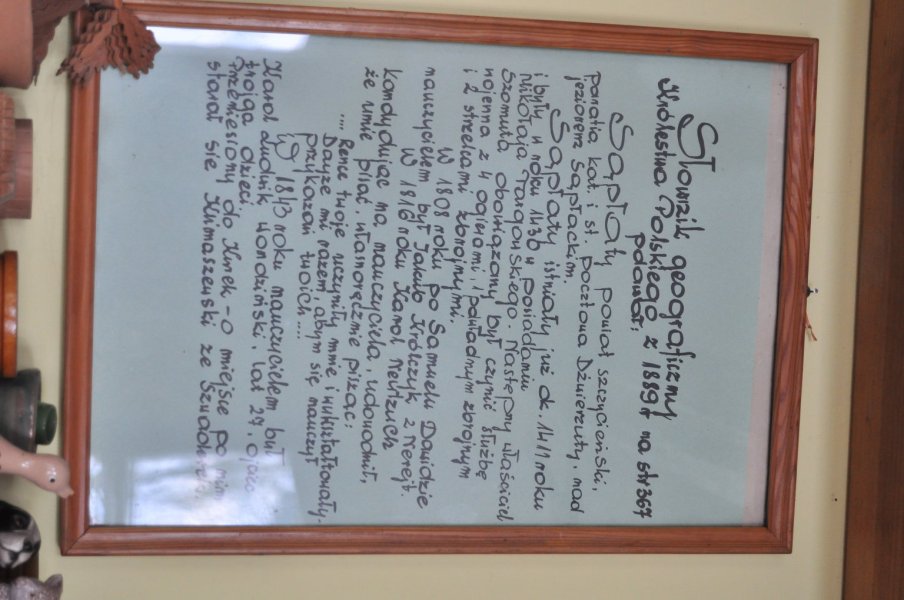 Słownik geograficzny
Królestwa Polskiego z 1889 r na str 367
podawał:
Sąpłaty powiat szczycieński,
parafia kat. i st. pocztowa Dźwierzuty, nad
jeziorem Sąpłackim.
Sąpłaty istniały już ok. 1411 roku
i były w roku 1436 w posiadaniu
Mikołaja Targowskiego. Następny właściciel
Szomuta, obowiązany był czynić służbę
wojenną z 4 ogierami, 1 powładnym zbrojnym
i 2 strzelcami zbrojnymi.
W 1808 roku po Samuelu Dawidzie
nauczycielem był Jakub Królczyk z
W 1816 roku Karol
kandydując na nauczyciela, udowodnił,
że umie pisać, własnoręcznie pisząc:
.... Ręce twoje uczyniły mnie i wykształtowały.
Dayże mi rozem, abym się nauczył
przykazań twoich ....
W 1843 roku nauczycielem był
Karol Ludwik Wondziński, lat 27, ojciec
trojga dzieci.
Przeniesiony do Kurek - o miejsce po nim
starał się Klimaszewski ze